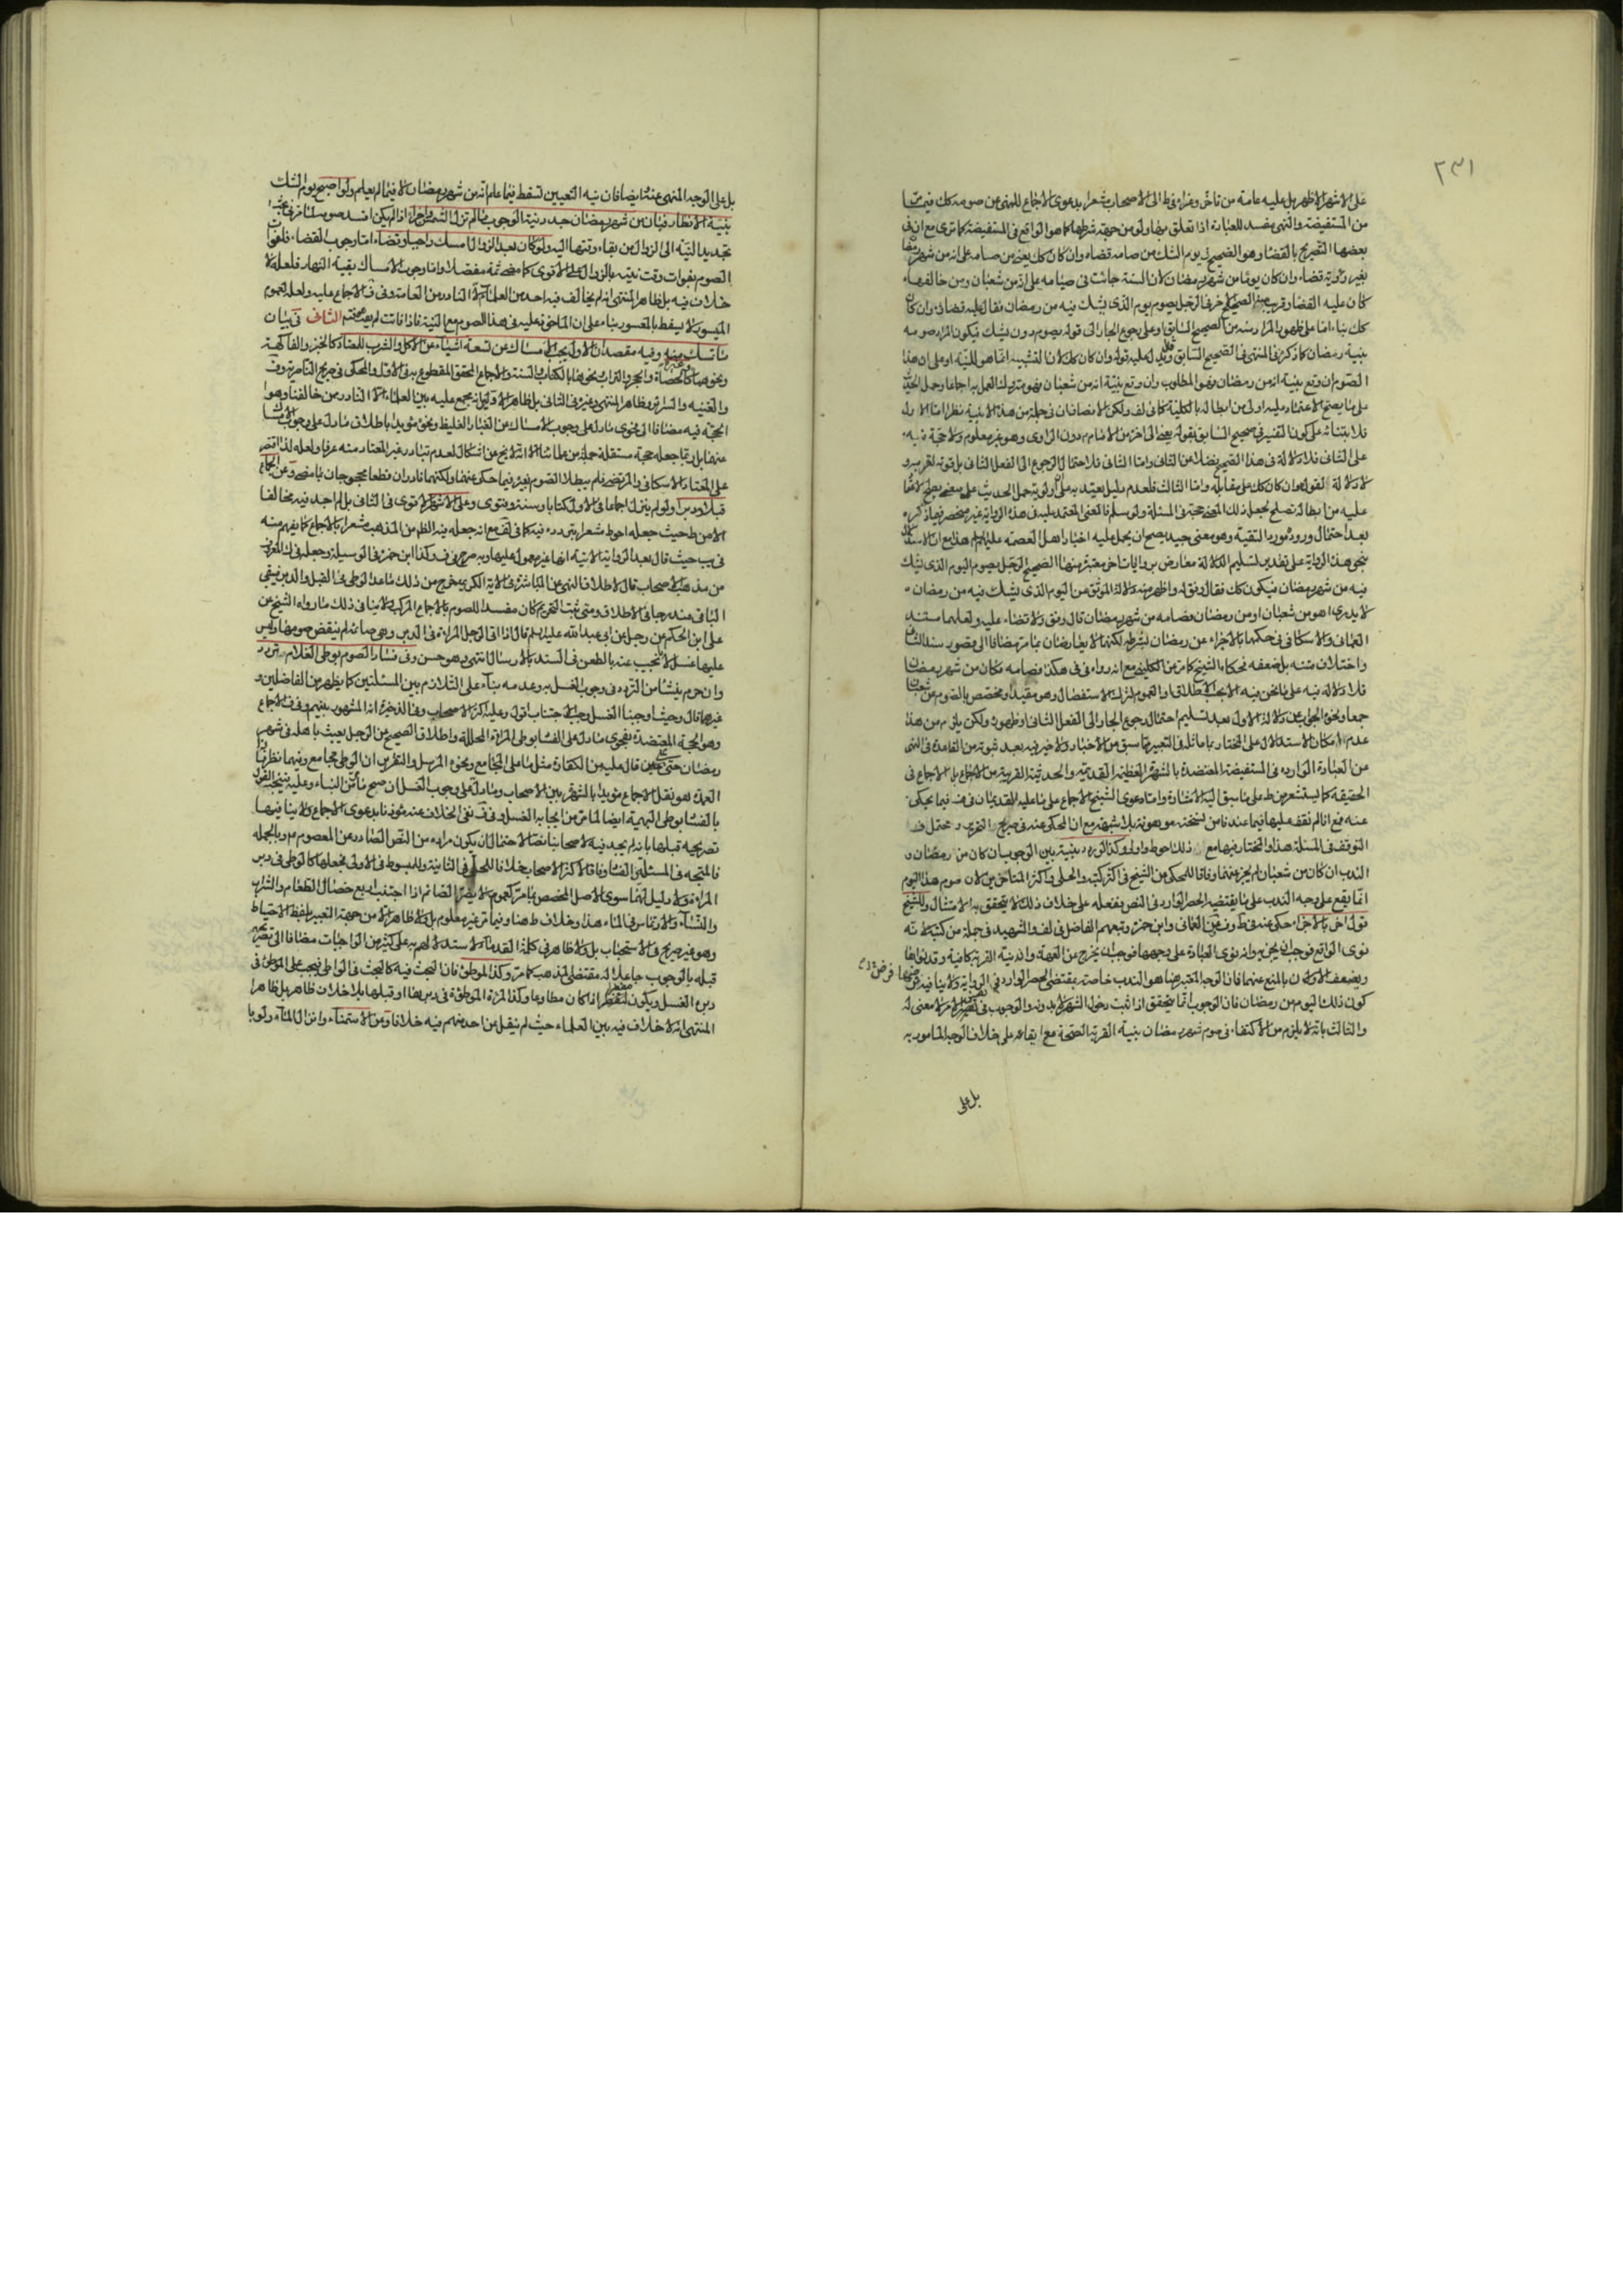 ٢٣١
على الاشهر الاظهر بل عليه عامة من تاخر وفاء في ط الى الاصحاب مشعرا بدعوى الاجماع للنهى عن صومه كك فيما
من المستفيضة والنهى مفسد للعبادة اذا تعلق بها ولو من جهة شرطها كما هو الواقع فى المستفيضة كما ترى مع ان فى
بعضها التصريح بالقضاء وهو الصحيح فى يوم الشك من صامه قضاه وان كان كك يعنى من صامه على انه من شهر رمضان
بغير رؤية قضاه وان كان يوما من شهر رمضان لان السنة جائت فى صيامه على انه من شعبان ومن خالفها
كان عليه القضاء وقريب منه الصحيح الاخر فى الرجل يصوم يوم الذى يشك فيه من رمضان فقال عليه قضاؤه وان كان
كك بناء اما على ظهور المراد منه من الصحيح السابق او على رجوع الجار الى قوله يصوم دون يشك فيكون المراد صومه
بنية رمضان كما ذكره فى المنتهى فى الصحيح السابق وقال عليه قوله وان كان كك لان التشبيه انما هو للنية او على ان هذا
الصوم ان وقع بنية انه من رمضان فهو المطلوب وان وقع بنية انه من شعبان فهو متروك العمل به اجماعا وحمل الحديث
على ما يصح الاعتماد عليه اولى من ابطاله بالكلية كما فى لف ولكن الانصاف ان فى جملة من هذه الابنية نظرا اما الاول
فلابتنائه على كون التفسير فى صحيح السابق بقوله يعنى الى اخره من الامام دون الراوى وهو غير معلوم ولا حجة فيه
على الثانى فلا دلالة فى هذا الصحيح فضلا عن الثانى واما الثانى فلاحتمال الرجوع الى الفعل الثانى بل قوته لقربه و
لا دلالة لقوله وان كان كك على مقابله واما الثالث فلعدم دليل يعتد به على اولوية حمل الحديث على معنى يصح الاعتماد
عليه من ابطاله تصلح بجعل ذلك المعنى حجة فى المسئلة ولو سلم فالمعنى المعتمد عليه فى هذه الرواية غير منحصر فيما ذكره
بعد احتمال وروده مورد التقية وهو معنى جيد يصح ان يحمل عليه اخبار اهل العصمة عليهم السلم هذا مع ان الاستدلال
بنحو هذه الرواية على تقدير تسليم الدلالة معارض بروايات اخر معتبرة منها الصحيح الرجل يصوم اليوم الذى يشك
فيه من شهر رمضان فيكون كك فقال وفق له واظهر منه دلالة الموثق عن اليوم الذى يشك فيه من رمضان
لا يدرى اهو من شعبان او من رمضان فصامه من شهر رمضان قال وفق ولا قضاء عليه ولعلهما مستند
العمانى والاسكافى فى حكمهما بالاجزاء عن رمضان لشرطه لكنهما لا يعارضان ما مر مضافا الى قصور سند الثانى
واختلاف متنه بل ضعفه بحكاه الشيخ كما مر عن الكلينى مع انه رواه فى فى هكذا فصامه فكان من شهر رمضان
فلا دلالة فيه على ما نحن فيه الا بحسب الاطلاق او العموم لترك الاستفصال وهو مقيد او مخصص بالصوم عن شعبان
جمعا ونحوه الجواب عن دلالة الاول بعد تسليم احتمال رجوع الجار الى الفعل الثانى او ظهوره ولكن يلزم من هذا
عدم امكان الاستدلال على المختار بما ماثله فى التعبير مما سبق من الاخبار ولا ضير فيه بعد ثبوته من القاعدة فى النهى
عن العبادة الواردة فى المستفيضة المعتضدة بالشهرة العظيمة القديمة والحديثة القريبة من الاجماع بل الاجماع فى
الحقيقة كما يستشعر من ط على ما سبق اليه الاشارة واما دعوى الشيخ الاجماع على ما عليه القديمان فى ف فيما يحكى
عنه فمع انا لم نقف عليها فيما عندنا من نسخته موهونة بلا شبهة مع ان المحكى عنه فى صريح التحرير ومحتمل ف
التوقف فى المسئلة هذا والمختار فيها مع ذلك احوط واولى وكذا لو ردد بنيته بين الوجوب ان كان من رمضان و
الندب ان كان من شعبان لم يجز عنهما وفاقا للمحكى عن الشيخ فى اكثر كتبه والحلى واكثر المتاخرين لان صوم هذا اليوم
انما يقع على وجه الندب على ما يقتضيه الحصر الوارد فى النص ففعله على خلاف ذلك لا يتحقق به الامتثال وللشيخ
قول اخر بالاجزاء حكى عنه فى ط وف وعن العمانى وابن حمزة وتبعهم الفاضل فى لف والشهيد فى جملة من كتبه لانه
نوى الواقع فوجب ان يجزيه وانه نوى العبادة على وجهها فوجب ان يخرج من العهدة وان نية القربة كافية وقد نواها
ويضعف الاولان بالمنع عنهما فان الوجه المعتبر هنا هو الندب خاصة بمقتضى الحصر الوارد فى الرواية ولا ينافيه
كون ذلك اليوم من رمضان فان الوجوب انما يتحقق اذا ثبت دخول الشهر لا بدونه والوجوب فى نفس الامر لا معنى له
والثالث بانه لا يلزم من الاكتفاء فى صوم شهر رمضان بنية القربة الصحة مع ايقاعه على خلاف الوجه المامور به
بل على
بل على الوجه المنهى عنه ايضا فان نية التعيين تسقط فيما علم انه من شهر رمضان لا فيما لم يعلم ولو اصبح يوم الشك
بنية الافطار فبان من شهر رمضان جدد نية الوجوب ما لم تزل الشمس واجزا اذا لم يكن افسد صومه لما مر فى بحث
تجديد النية الى الزوال من بقاء وقتها اليه ولو كان بعد الزوال امسك واجبا وقضاه اما وجوب القضاء فلفوات
الصوم بفوات وقت نيته بالزوال على الاقوى كما مضى ثمة مفصلا واما وجوب الامساك بقية النهار فلعله لا
خلاف فيه بل ظاهر المنتهى انه لم يخالف فيه احد من العلماء الا النادر من العامة وفى ف الاجماع عليه ولعله لعموم
الميسور لا يسقط بالمعسور بناء على ان الماخوذ عليه فى هذا الصوم مع النية فاذا فاتت لم يفت الثانى فى بيان
ما يمسك عنه وفيه مقصدان الاول يجب الامساك عن تسعة اشياء عن الاكل والشرب للمعتاد كالخبز والفاكهة
ونحوهما وغيره كالحصاة والحجر والتراب ونحوها بالكتاب والسنة والاجماع المحقق المقطوع به فى الاول والمحكى فى صريح الناصرية وف
والغنية والسرائر وظاهر المنتهى وغيره فى الثانى بل ظاهر الاولين انه مجمع عليه بين العلماء الا النادر من خالفنا وهو
الحجة فيه مضافا الى فحوى ما دل على وجوب الامساك عن الغبار الغليظ ونحوه مؤيدا باطلاق ما دل على وجوب الامساك
عنهما بل ربما جعله حجة مستقلة جملة من علمائنا الا انه لا يخ عن اشكال لعدم تبادر غير المعتاد منه عرفا ولعله لذا اقتصر
على المعتاد الاسكافى والمرتضى فلم يبطلا الصوم بغيره فيما حكى عنهما ولكنهما نادران قطعا محجوجان بما مضى وعن الجماع
قبلا ودبرا ولو لم ينزل اجماعا فى الاول كتابا وسنة وفتوى وعلى الاشهر الاقوى فى الثانى بل لم اجد فيه مخالفا
الا من ط حيث جعله احوط مشعرا بتردده فيه كما فى لف مع انه جعله فيه الظ من المذهب مشعرا بالاجماع كما يفهم منه
فى يب حيث قال بعد الرواية الاتية انها غير معمول عليها وبه صرح فى ف وكذا ابن حمزة فى الوسيلة وجعله فى ك المعروف
من مذهب الاصحاب قال لاطلاق النهى عن المباشرة فى الاية الكريمة خرج من ذلك ما عدا الوطى فى القبل والدبر فيبقى
الباقى مندرجا فى الاطلاق ومتى ثبت التحريم كان مفسدا للصوم بالاجماع المركب ولا ينافى ذلك ما رواه الشيخ عن
على ابن الحكم عن رجل عن ابى عبد الله عليه السلم قال اذا اتى الرجل المراة فى الدبر وهى صائمة لم ينقض صومها وليس
عليها غسل لانا نجيب عنه بالطعن فى السند بالارسال انتهى وهو حسن وفى فساد الصوم بوطى الغلام تردد
وان حرم ينشا من التردد فى وجوب الغسل به وعدمه بناء على التلازم بين المسئلتين كما يظهر من الفاضلين و
غيرهما قال وحيث اوجبنا الغسل وجب الاجتناب اقول وعليه اكثر الاصحاب وفى الذخيرة انه المشهور بينهم وفى ف الاجماع
وهو الحجة المعتضدة بفحوى ما دل على الفساد بوطى المراة المحللة واطلاق الصحيح عن الرجل يعبث باهله فى شهر
رمضان حتى يمنى قال عليه من الكفارة مثل ما على المجامع ونحوه المرسل والتقريب ان الوطى جماع وفيهما نظر فاذا
العمدة هو نقل الاجماع مؤيدا بالشهرة بين الاصحاب وما دل على وجوب الغسل ان صح ما مر من البناء وعليه يتجه القول
بالفساد بوطى البهيمة ايضا لما مر من ايجابه الغسل وفى ف نفى الخلاف عنه مؤذنا بدعوى الاجماع ولا ينافيها
تصريحه قبلها بانه لم يجد فيه لاصحابنا نصا لاحتمال ان يكون مراده من النص الصادر عن المعصوم وبالجملة
فالمتجه فى المسئلتين الفساد وفاقا لاكثر الاصحاب خلافا للحلى فى الثانية وللمبسوط فى الاولى فجعلها كالوطى فى دبر
المراة ولا دليل لهما سوى الاصل المخصص بما مر كعموم لا يضر الصائم اذا اجتنب اربع خصال الطعام والشراب
والنساء والارتماس فى الماء هذا وخلاف ط هنا وفيما مر غير معلوم بل ولا ظاهر الا من جهة التعبير بلفظ الاحتياط
وهو غير صريح فى الاستحباب بل ولا ظاهر فى كلمة القدماء لاستدلالهم به على كثير من الواجبات مضافا الى تصريحه
قبله بالوجوب جاعلا له مقتضى المذهب كما مر وكذا الموطوء فان البحث فيه كالبحث فى الواطى فيجب على الموطوء فى
دبره الغسل ويكون مفطرا اذا كان مطاوعا وكذا المراة الموطوءة فى دبرها او قبلها بلا خلاف ظاهر بل ظاهر
المنتهى انه لا خلاف فيه بين العلماء حيث لم ينقل عن احد منهم فيه خلافا وعن الاستمناء وانزال الماء ولو با